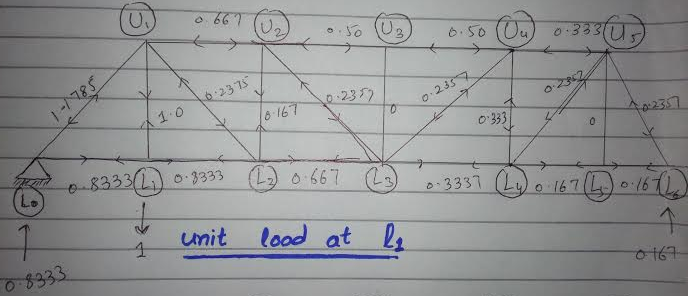 U1 0.667 U2 0.50 U3 0.50 U4 0.333 U5
1.1785 1.0 0.2375 0.167 0.2357 0 0.2357 0.333 0.2357 0 0.2357
L0 0.8333 L1 0.8333 L2 0.667 L3 0.3337 L4 0.167 L5 0.167 L6
1 unit load at L1
0.8333 0.167